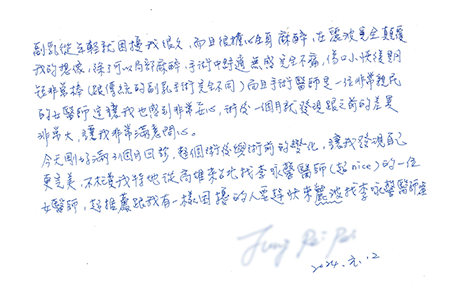 副乳從年輕就困擾我很久，而且很擔心全身麻醉，在麗波完全顛覆
我的想像，除了可以局部麻醉，手術中舒適無感完全不痛，傷口小恢復期
短非常棒（跟傳統的副乳手術完全不同）而且手術醫師是一位非常親民
的女醫師這讓我也感到非常安心，術後一個月就發現跟之前的差異
非常大，讓我非常滿意開心。
今天剛好滿3個月回診，整個術後與術前的變化，讓我發現自己
更完美，不枉費我特地從高雄來台北找李詠馨醫師（超nice）的一位
女醫師，超推薦跟我有一樣困擾的人要趕快來麗波找李詠馨醫師
2024.元.12